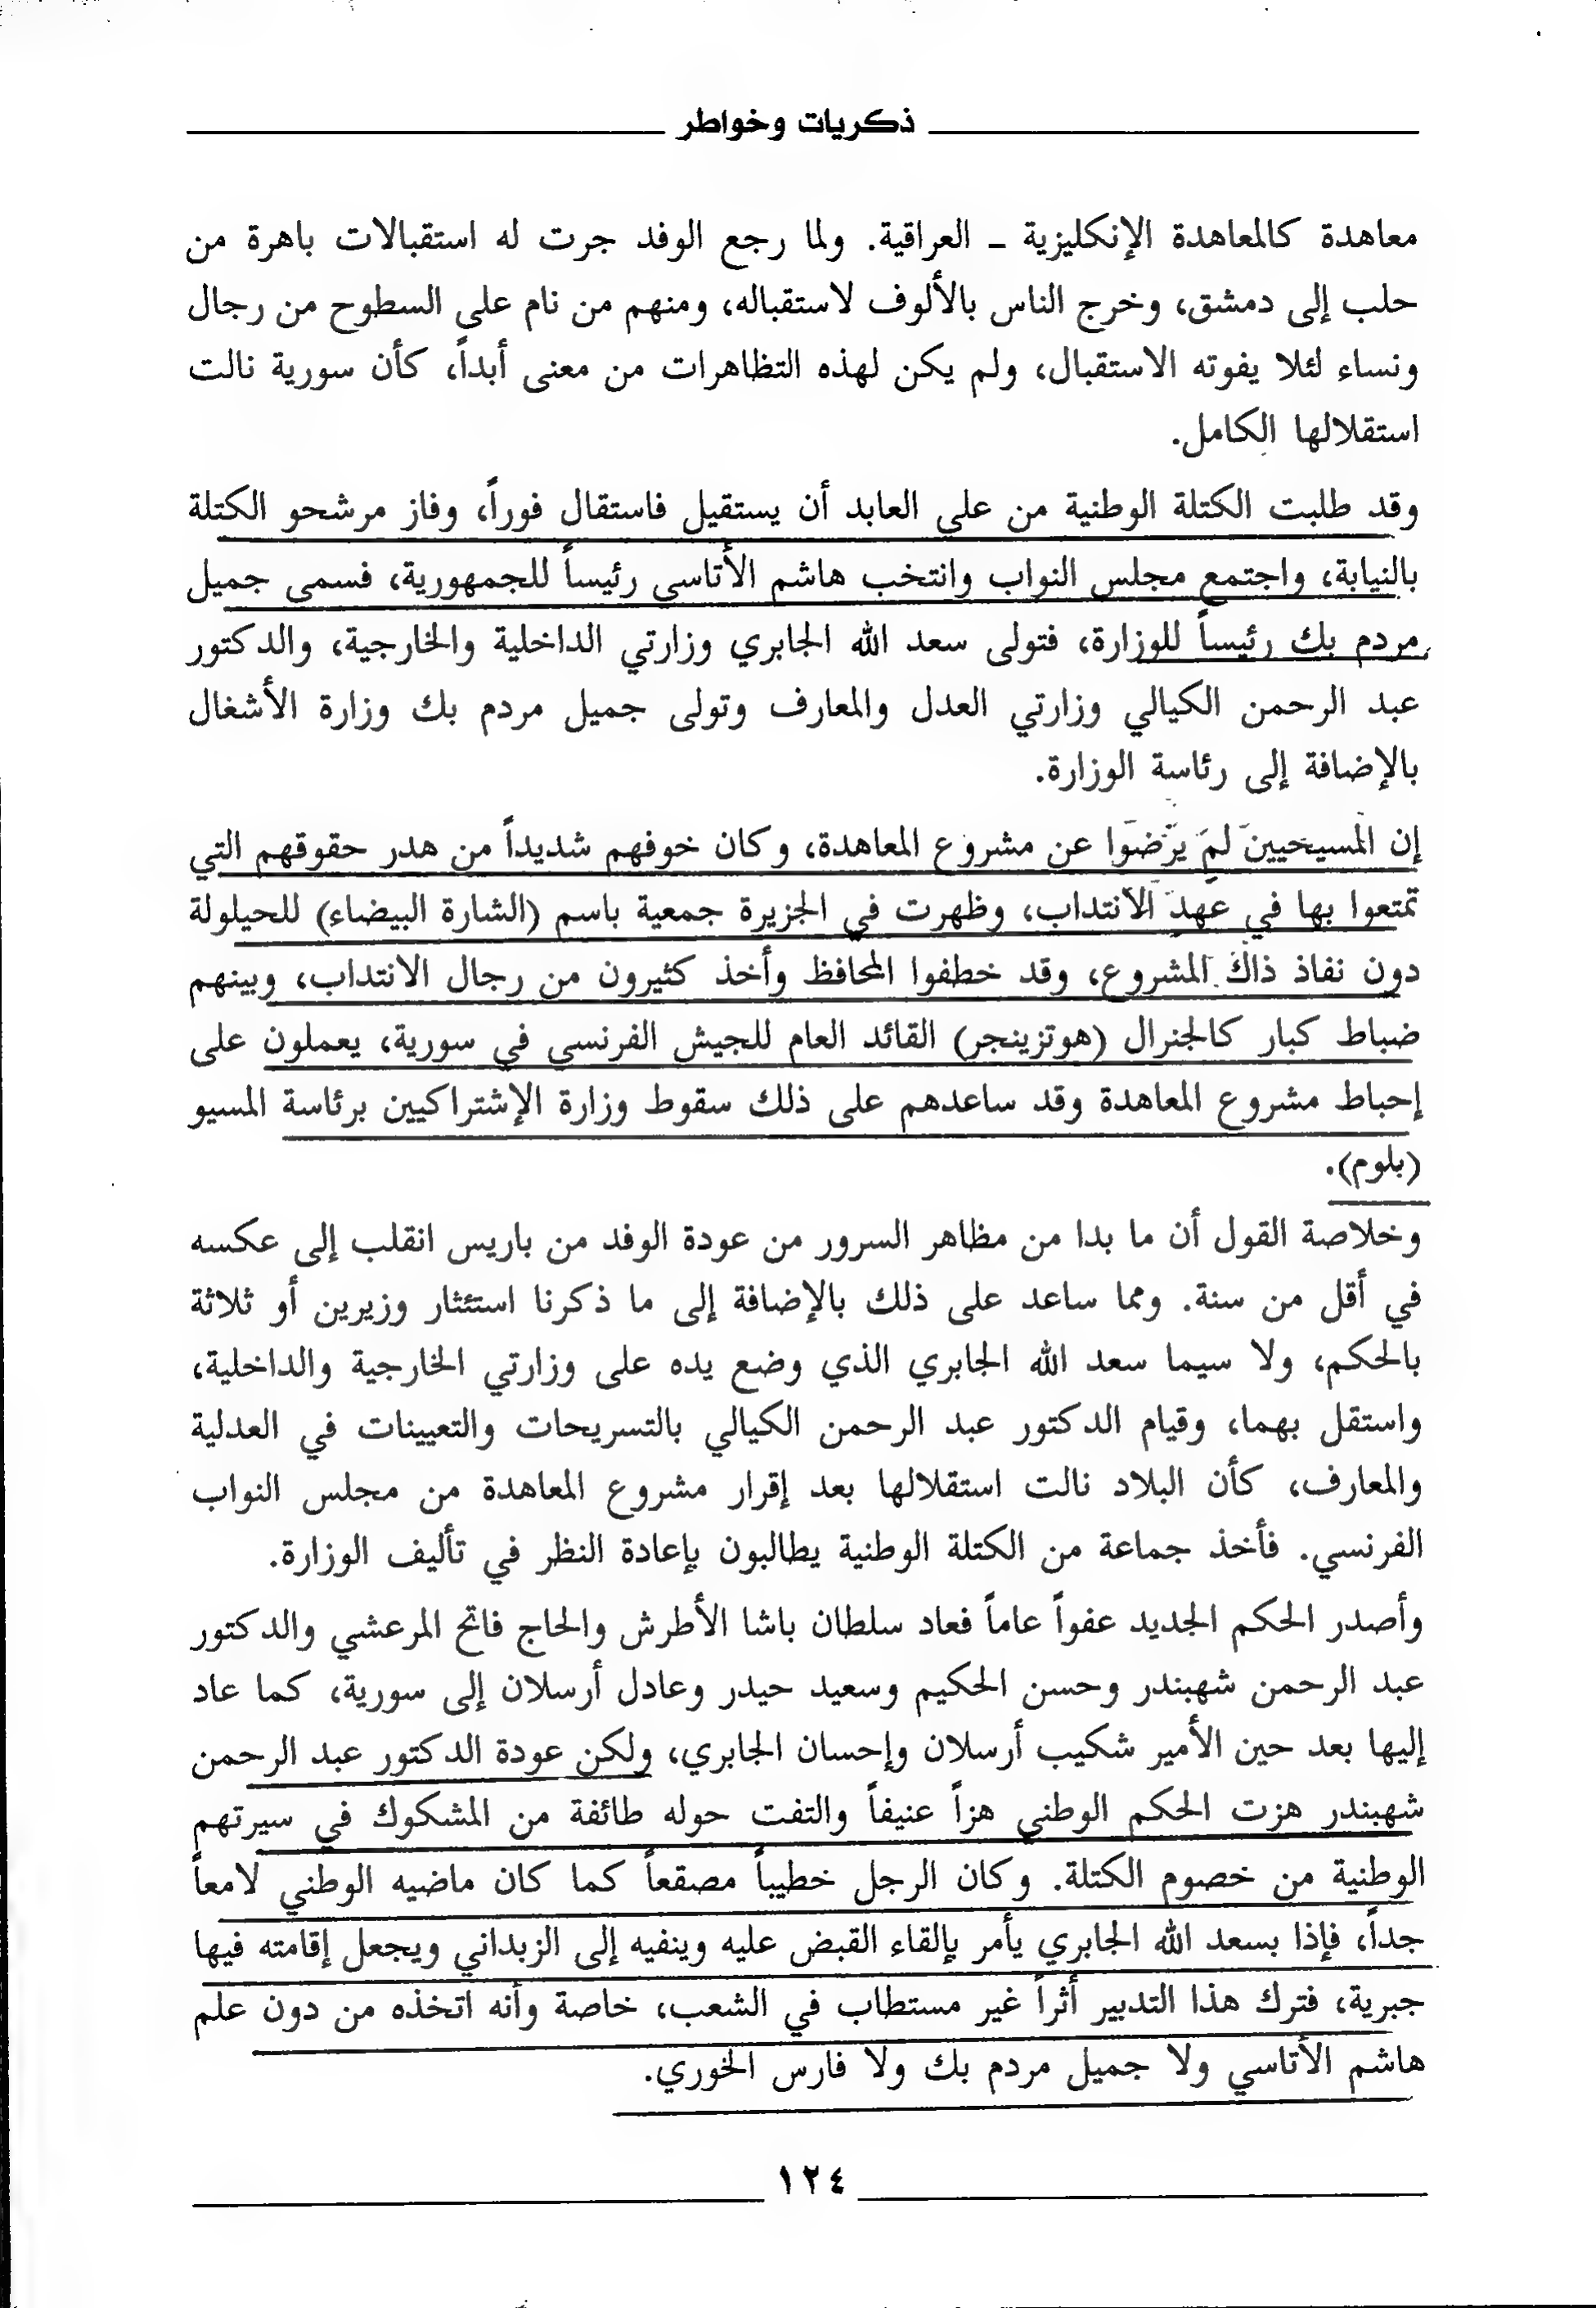 ذكريات وخواطر
معاهدة كالمعاهدة الإنكليزية ـ العراقية. ولما رجع الوفد جرت له استقبالات باهرة من
حلب إلى دمشق، وخرج الناس بالألوف لاستقباله، ومنهم من نام على السطوح من رجال
ونساء لئلا يفوته الاستقبال، ولم يكن لهذه التظاهرات من معنى أبداً، كأن سورية نالت
استقلالها الكامل.
وقد طلبت الكتلة الوطنية من علي العابد أن يستقيل فاستقال فوراً، وفاز مرشحو الكتلة
بالنيابة، واجتمع مجلس النواب وانتخب هاشم الأتاسي رئيساً للجمهورية، فسمى جميل
مردم بك رئيساً للوزارة، فتولى سعد الله الجابري وزارتي الداخلية والخارجية، والدكتور
عبد الرحمن الكيالي وزارتي العدل والمعارف وتولى جميل مردم بك وزارة الأشغال
بالإضافة إلى رئاسة الوزارة.
إن المسيحيين لم يرضوا عن مشروع المعاهدة، وكان خوفهم شديداً من هدر حقوقهم التي
تمتعوا بها في عهد الانتداب، وظهرت في الجزيرة جمعية باسم (الشارة البيضاء) للحيلولة
دون نفاذ ذاك المشروع، وقد خطفوا المحافظ وأخذ كثيرون من رجال الانتداب، وبينهم
ضباط كبار كالجنرال (هوتزينجر) القائد العام للجيش الفرنسي في سورية، يعملون على
إحباط مشروع المعاهدة وقد ساعدهم على ذلك سقوط وزارة الإشتراكيين برئاسة المسيو
(بلوم).
وخلاصة القول أن ما بدا من مظاهر السرور من عودة الوفد من باريس انقلب إلى عكسه
في أقل من سنة. ومما ساعد على ذلك بالإضافة إلى ما ذكرنا استئثار وزيرين أو ثلاثة
بالحكم، ولا سيما سعد الله الجابري الذي وضع يده على وزارتي الخارجية والداخلية،
واستقل بهما، وقيام الدكتور عبد الرحمن الكيالي بالتسريحات والتعيينات في العدلية
والمعارف، كأن البلاد نالت استقلالها بعد إقرار مشروع المعاهدة من مجلس النواب
الفرنسي. فأخذ جماعة من الكتلة الوطنية يطالبون بإعادة النظر في تأليف الوزارة.
وأصدر الحكم الجديد عفواً عاماً فعاد سلطان باشا الأطرش والحاج فاتح المرعشي والدكتور
عبد الرحمن شهبندر وحسن الحكيم وسعيد حيدر وعادل أرسلان إلى سورية، كما عاد
إليها بعد حين الأمير شكيب أرسلان وإحسان الجابري، ولكن عودة الدكتور عبد الرحمن
شهبندر هزت الحكم الوطني هزاً عنيفاً والتفت حوله طائفة من المشكوك في سيرتهم
الوطنية من خصوم الكتلة. وكان الرجل خطيباً مصقعاً كما كان ماضيه الوطني لامعاً
جداً، فإذا بسعد الله الجابري يأمر بإلقاء القبض عليه وينفيه إلى الزبداني ويجعل إقامته فيها
جبرية، فترك هذا التدبير أثراً غير مستطاب في الشعب، خاصة وأنه اتخذه من دون علم
هاشم الأتاسي ولا جميل مردم بك ولا فارس الخوري.
١٢٤